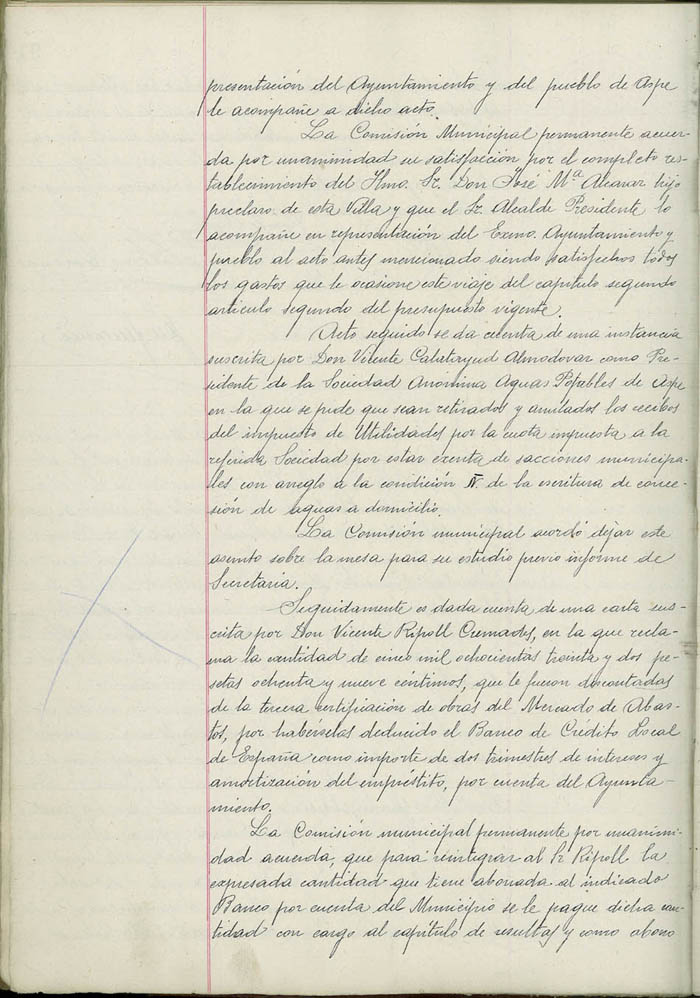 presentación del Ayuntamiento y del pueblo de Aspe
le acompañe a dicho acto.
La Comisión Municipal permanente acuer-
da por unanimidad su satisfacción por el completo res-
tablecimiento del Ilmo. Sr. Don José Mª Alcaraz hijo
preclaro de esta Villa y que el Sr. Alcalde Presidente lo
acompañe en representación del Excmo. Ayuntamiento y
pueblo al acto antes mencionado siendo satisfechos todos
los gastos que le ocasione este viaje del capitulo segundo
articulo segundo del presupuesto vigente.
Acto seguido se da cuenta de una instancia
suscrita por Don Vicente Calatayud Almodovar como Pre-
sidente de la Sociedad Anónima Aguas Potables de Aspe
en la que se pide que sean retirados y anulados los recibos
del impuesto de Utilidades por la cuota impuesta a la
referida Sociedad por estar exenta de sacciones municipa-
les con arreglo á la condición de la escritura de conce-
sión de aguas a domicilio.
La Comisión municipal acordó dejar este
asunto sobre la mesa para su estudio previo informe de
Secretaria.
Seguidamente es dada cuenta de una carta sus-
crita por Don Vicente Ripoll Cremades, en la que recla-
ma la cantidad de cinco mil ochocientas treinta y dos pe-
setas ochenta y nueve céntimos, que le fueron descontadas
de la tercera certificación de obras del Mercado de Abas-
tos, por habérselas deducido el Banco de Crédito Local
de España como importe de dos trimestres de intereses y
amortización del empréstito, por cuenta del Ayunta-
miento.
La Comisión municipal permanente por unanimi-
dad acuerda, que para reintegrar al Sr Ripoll la
expresada cantidad que tiene abonada al indicado
Banco por cuenta del Municipio se le pague dicha can-
tidad con cargo al capítulo de resultas y como abono